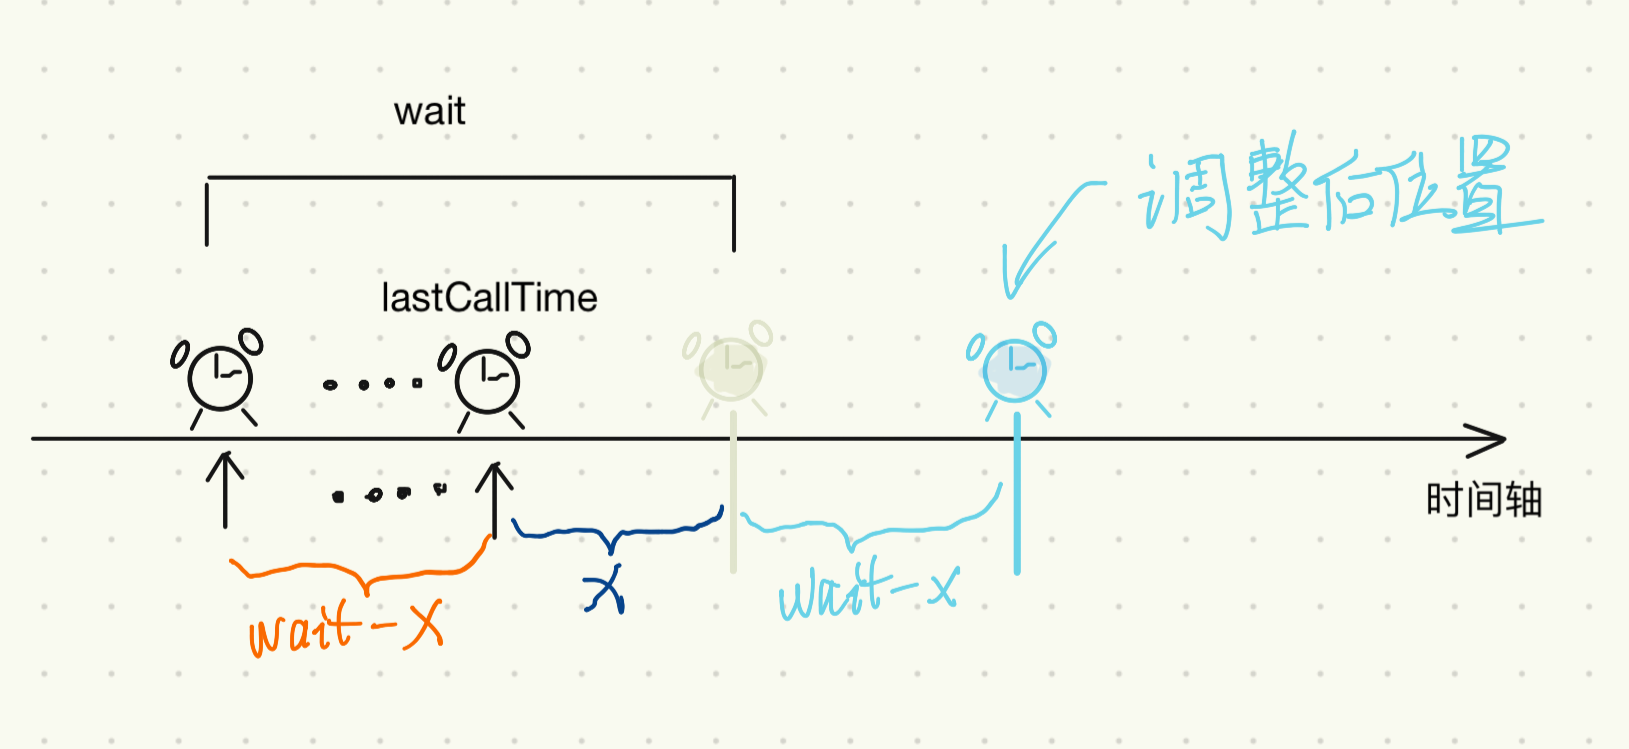 wait
调整后位置
lastCallTime
时间轴
wait-x
x
wait-x